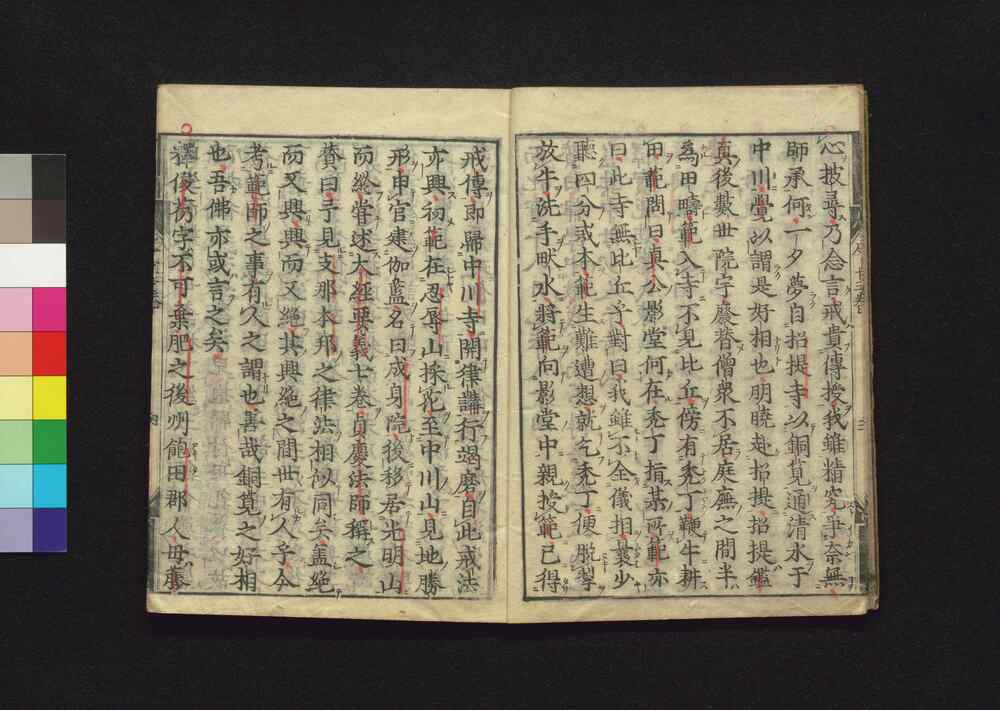 心披尋乃念言戒貴傳授我雖精究爭奈無
師承何一夕夢自招提寺以銅筧通清水于
中川覺以謂是好相也明曉赴招提招提鑑
真後數世院宇廢替僧衆不居庭廡之間半
爲田疇範入寺不見比丘傍有禿丁鞭牛耕
田範問曰真公影堂何在禿丁指某所範亦
曰此寺無比丘乎對曰我雖不全儀相曩少
聽四分戒本範生難遭想就乞禿丁便脱犂
放牛洗手畎水將範向影堂中親授範已得
戒傳即歸中川寺開律講行羯磨自此戒法
亦興初範在忍辱山採花至中川山見地勝
形申官建伽藍名曰成身院後移居光明山
而終嘗述大經要義七卷貞慶法師稱之
賛曰予見支那本邦之律法相似同矣盖絶
而又興興而又絶其興絶之間世有人乎今
考範師之事有久之謂也善哉銅筧之好相
也吾佛亦或言之矣
釋俊芿字不可棄肥之後州飽田郡人母藤